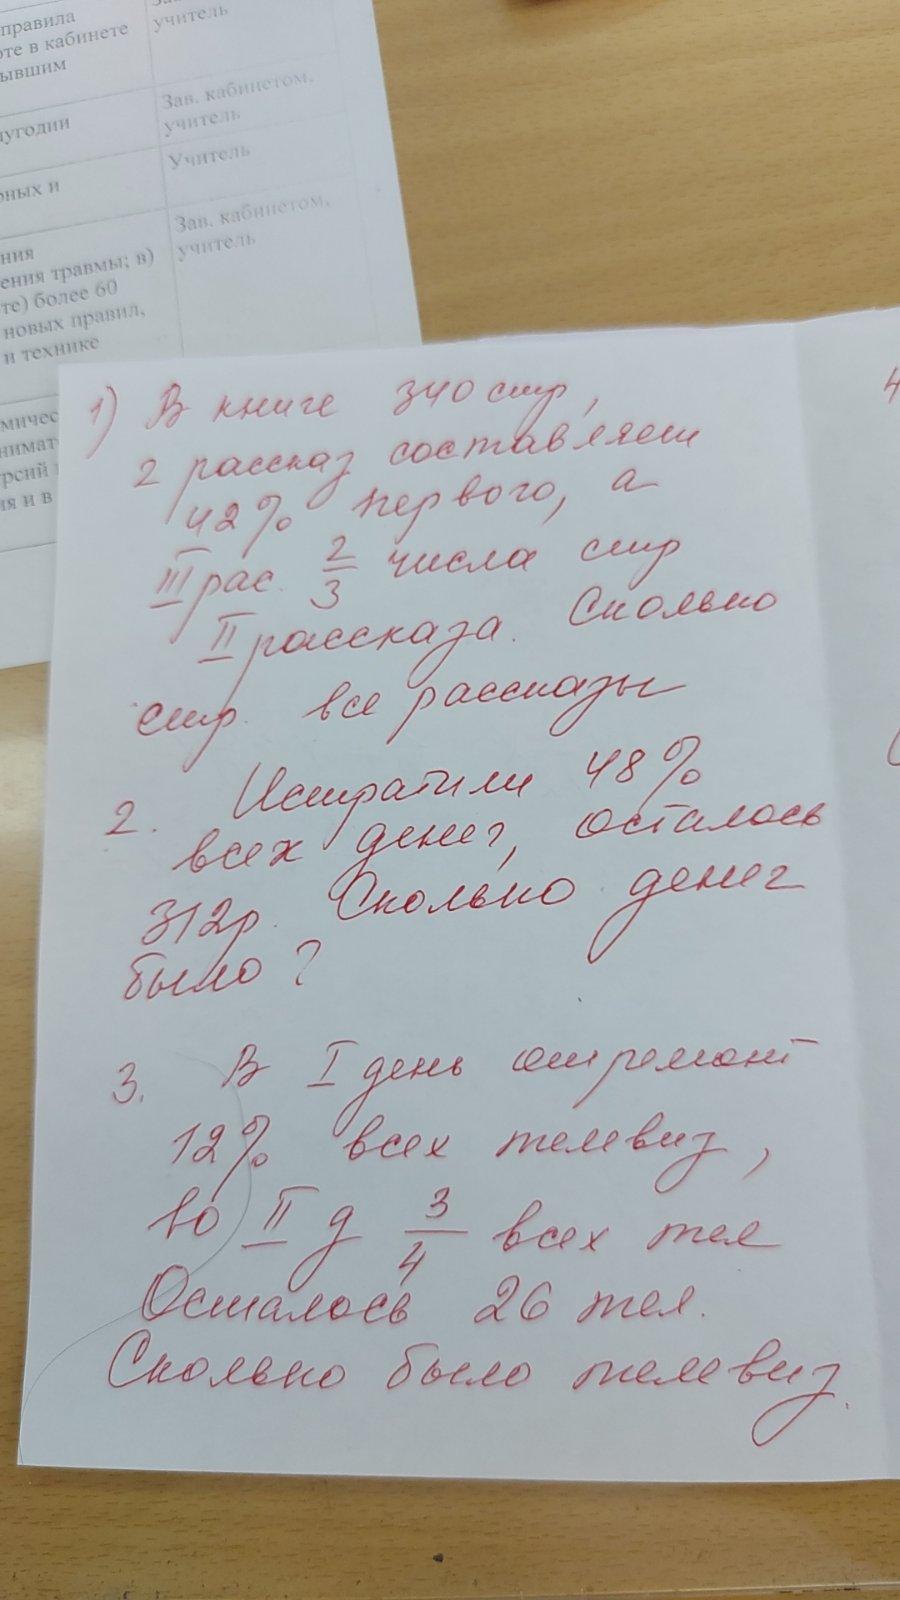 правила
оте в кабинете
ывшим
учитель
лугодии
Зав. кабинетом,
учитель
рных и
Учитель
ния
ения травмы; в)
те) более 60
новых правил,
и технике
Зав. кабинетом,
учитель
мичес
нимат
рсий
ия и в
1) В книге 340 стр,
2 рассказ составляет
42% первого, а
III рас. 2/3 числа стр
II рассказа. Сколько
стр. все рассказы
2. Истратили 48%
всех денег, осталось
312р. Сколько денег
было?
3. В I день отремонт
12% всех телевиз,
во II д 3/4 всех тел
Осталось 26 тел.
Сколько было телевиз.
4